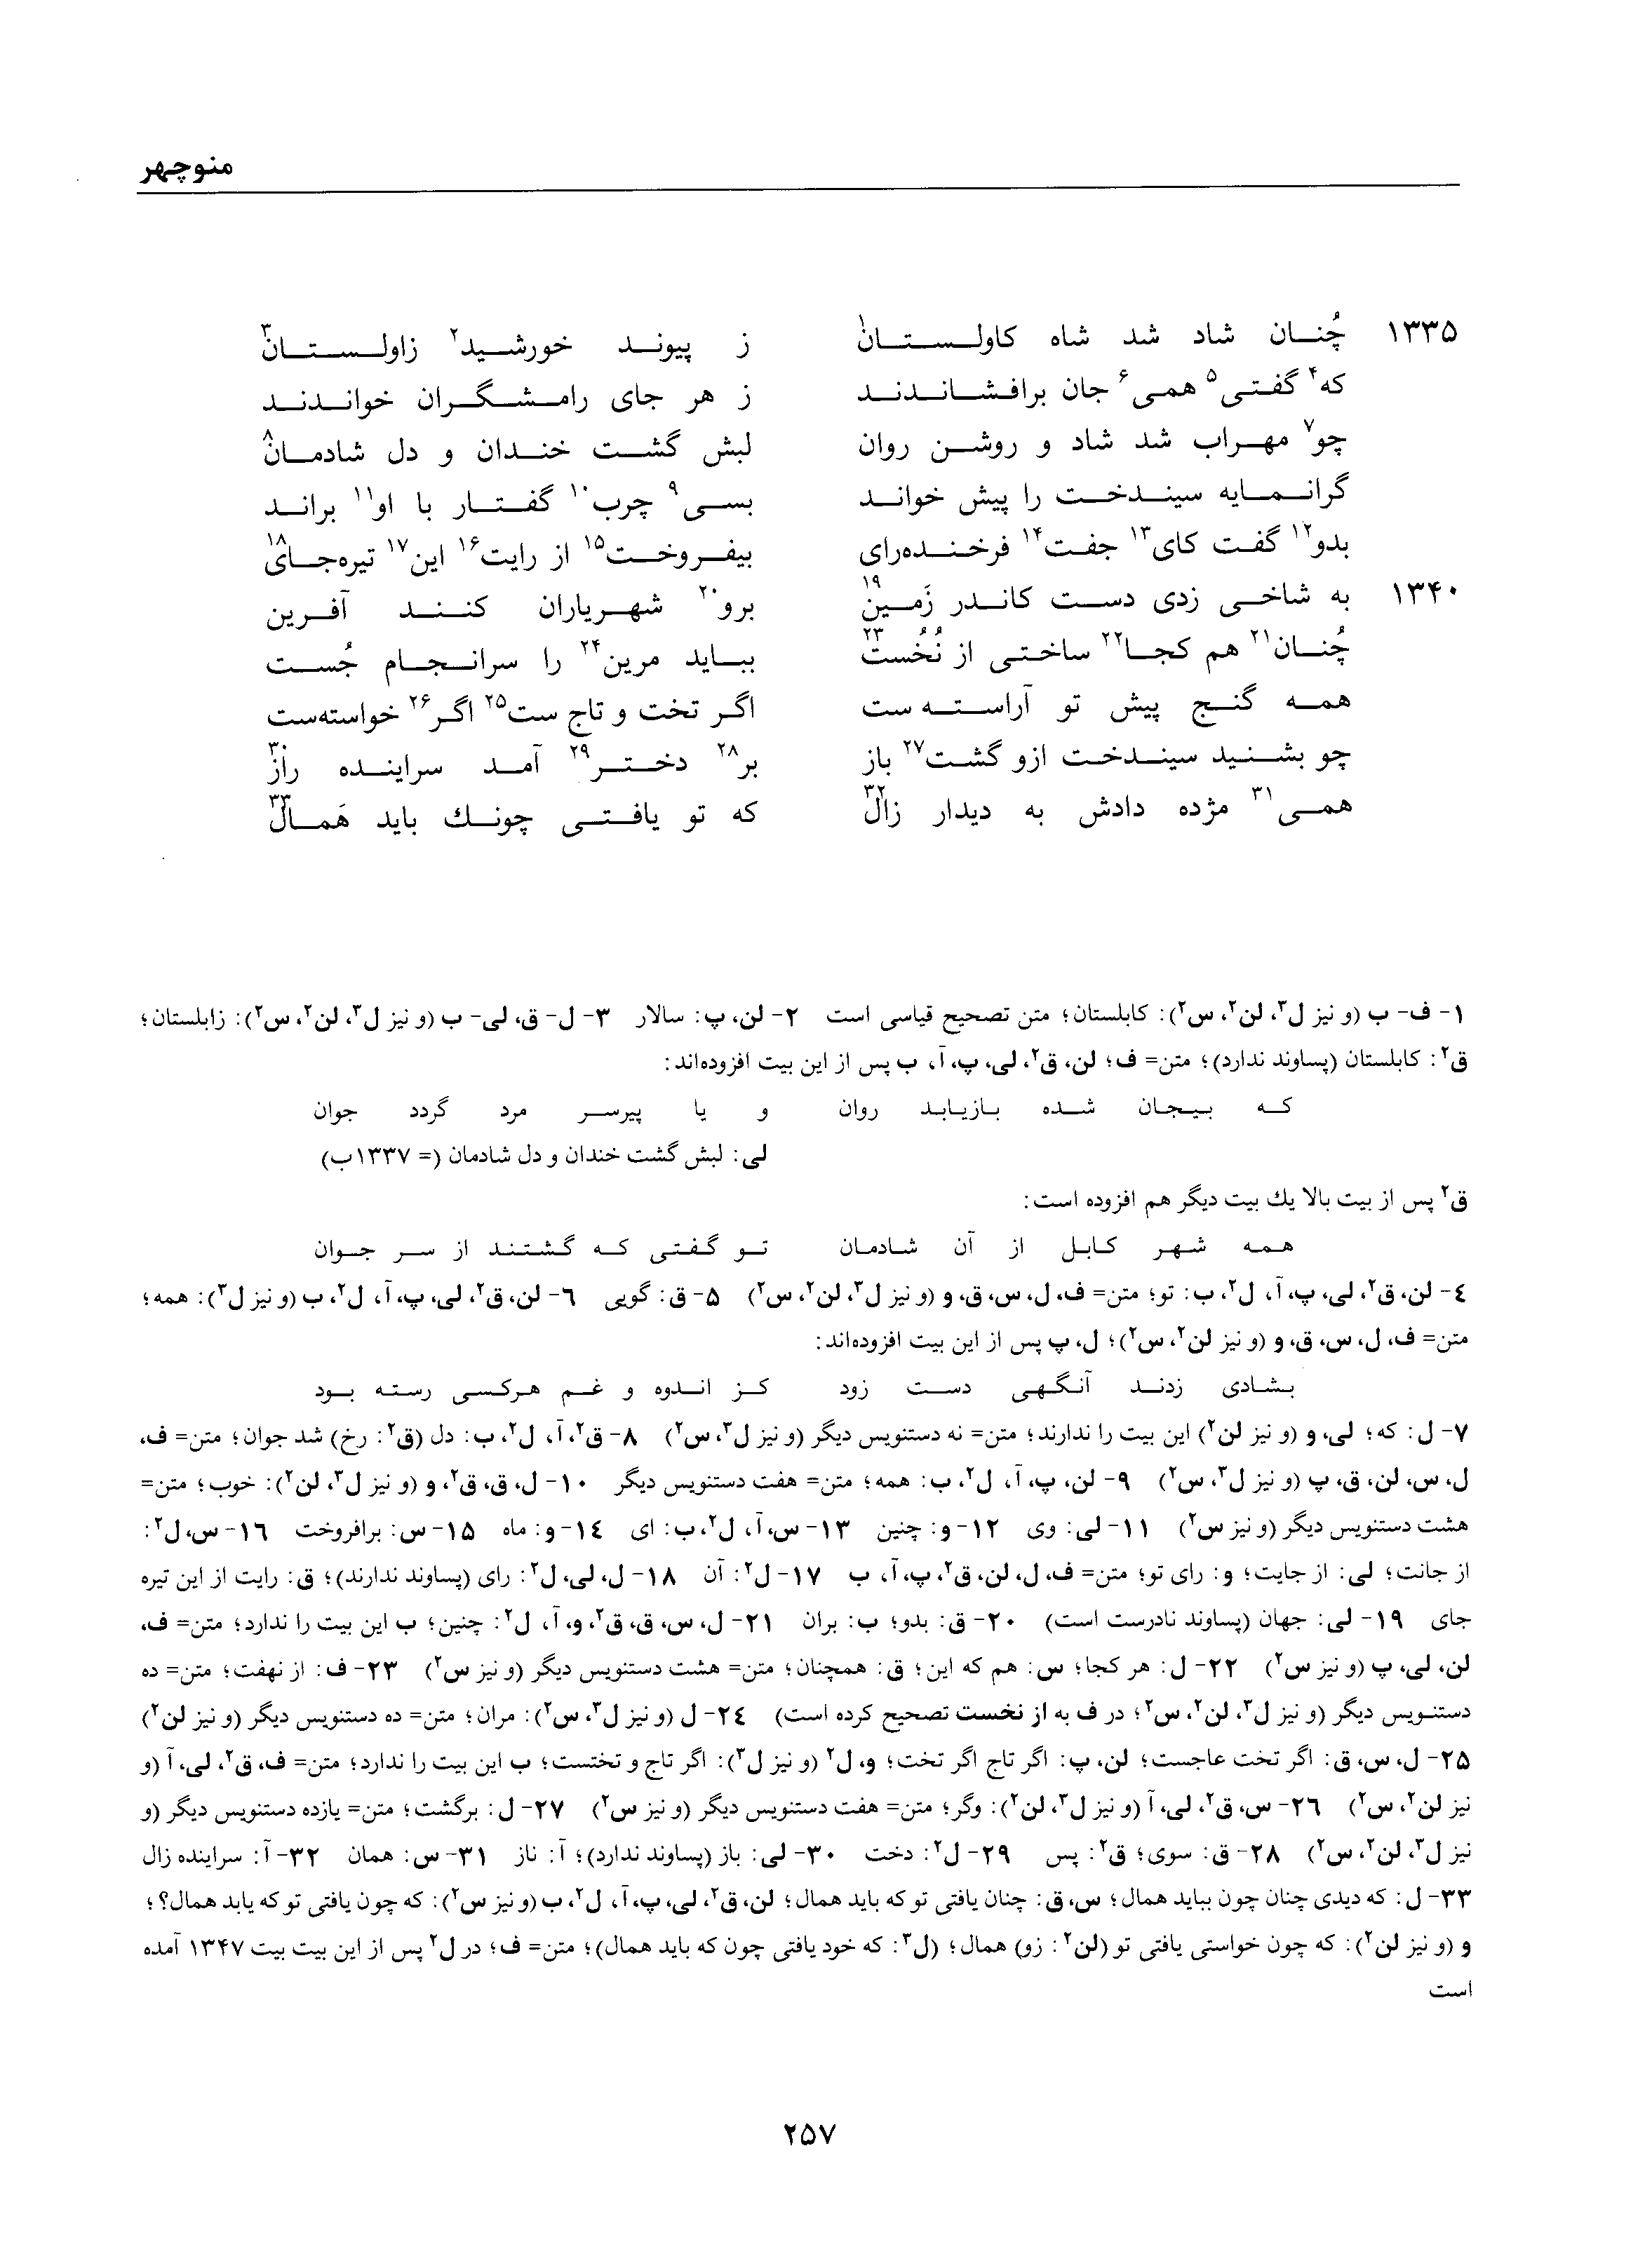 منوچهر
۱۳۳۵ چُنان شاد شد شاه کاولستان۱ ز پیوند خورشید۲ زاولستان۳
که۴ گفتی۵ همی۶ جان برافشاندند ز هر جای رامشگران خواندند
چو۷ مهراب شد شاد و روشن روان لبش گشت خندان و دل شادمان۸
گرانمایه سیندخت را پیش خواند بسی۹ چرب۱۰ گفتار با او۱۱ براند
بدو۱۲ گفت کای۱۳ جفت۱۴ فرخنده‌رای بیفروخت۱۵ از رایت۱۶ این۱۷ تیره‌جای۱۸
۱۳۴۰ به شاخی زدی دست کاندر زَمین۱۹ برو۲۰ شهریاران کنند آفرین
چُنان۲۱ هم کجا۲۲ ساختی از نُخُست۲۳ بباید مرین۲۴ را سرانجام جُست
همه گنج پیش تو آراسته‌ست اگر تخت و تاج ست۲۵ اگر۲۶ خواسته‌ست
چو بشنید سیندخت ازو گشت۲۷ باز بر۲۸ دختر۲۹ آمد سراینده راز۳۰
همی۳۱ مژده دادش به دیدار زال۳۲ که تو یافتی چونك باید هَمال۳۳
۱- ف- ب (و نیز ل۳، لن۲، س۲): کابلستان؛ متن تصحیح قیاسی است ۲- لن، پ: سالار ۳- ل- ق، لی- ب (و نیز ل۳، لن۲، س۲): زابلستان؛
ق۲: کابلستان (پساوند ندارد)؛ متن= ف؛ لن، ق۲، لی، پ، آ، ب پس از این بیت افزوده‌اند:
که بیجان شده بازیابد روان و یا پیرسر مرد گردد جوان
لی: لبش گشت خندان و دل شادمان (= ۱۳۳۷ب)
ق۲ پس از بیت بالا یك بیت دیگر هم افزوده است:
همه شهر کابل از آن شادمان تو گفتی که گشتند از سر جوان
۴- لن، ق۲، لی، پ، آ، ل۲، ب: تو؛ متن= ف، ل، س، ق، و (و نیز ل۳، لن۲، س۲) ۵- ق: گویی ۶- لن، ق۲، لی، پ، آ، ل۲، ب (و نیز ل۳): همه؛
متن= ف، ل، س، ق، و (و نیز لن۲، س۲)؛ ل، پ پس از این بیت افزوده‌اند:
بشادی زدند آنگهی دست زود کز اندوه و غم هرکسی رسته بود
۷- ل: که؛ لی، و (و نیز لن۲) این بیت را ندارند؛ متن= نه دستنویس دیگر (و نیز ل۳، س۲) ۸- ق۲، آ، ل۲، ب: دل (ق۲: رخ) شد جوان؛ متن= ف،
ل، س، لن، ق، پ (و نیز ل۳، س۲) ۹- لن، پ، آ، ل۲، ب: همه؛ متن= هفت دستنویس دیگر ۱۰- ل، ق، ق۲، و (و نیز ل۳، لن۲): خوب؛ متن=
هشت دستنویس دیگر (و نیز س۲) ۱۱- لی: وی ۱۲- و: چنین ۱۳- س، آ، ل۲، ب: ای ۱۴- و: ماه ۱۵- س: برافروخت ۱۶- س، ل۲:
از جانت؛ لی: از جایت؛ و: رای تو؛ متن= ف، ل، لن، ق۲، پ، آ، ب ۱۷- ل۲: آن ۱۸- ل، لی، ل۲: رای (پساوند ندارند)؛ ق: رایت از این تیره
جای ۱۹- لی: جهان (پساوند نادرست است) ۲۰- ق: بدو؛ ب: بران ۲۱- ل، س، ق، ق۲، و، آ، ل۲: چنین؛ ب این بیت را ندارد؛ متن= ف،
لن، لی، پ (و نیز س۲) ۲۲- ل: هر کجا؛ س: هم که این؛ ق: همچنان؛ متن= هشت دستنویس دیگر (و نیز س۲) ۲۳- ف: از نهفت؛ متن= ده
دستنویس دیگر (و نیز ل۳، لن۲، س۲؛ در ف به از نخست تصحیح کرده است) ۲۴- ل (و نیز ل۳، س۲): مران؛ متن= ده دستنویس دیگر (و نیز لن۲)
۲۵- ل، س، ق: اگر تخت عاجست؛ لن، پ: اگر تاج اگر تخت؛ و، ل۲ (و نیز ل۳): اگر تاج و تختست؛ ب این بیت را ندارد؛ متن= ف، ق۲، لی، آ (و
نیز لن۲، س۲) ۲۶- س، ق۲، لی، آ (و نیز ل۳، لن۲): وگر؛ متن= هفت دستنویس دیگر (و نیز س۲) ۲۷- ل: برگشت؛ متن= یازده دستنویس دیگر (و
نیز ل۳، لن۲، س۲) ۲۸- ق: سوی؛ ق۲: پس ۲۹- ل۲: دخت ۳۰- لی: باز (پساوند ندارد)؛ آ: ناز ۳۱- س: همان ۳۲- آ: سراینده زال
۳۳- ل: که دیدی چنان چون بباید همال؛ س، ق: چنان یافتی تو که باید همال؛ لن، ق۲، لی، پ، آ، ل۲، ب (و نیز س۲): که چون یافتی تو که یابد همال؟؛
و (و نیز لن۲): که چون خواستی یافتی تو (لن۲: زو) همال؛ (ل۳: که خود یافتی چون که باید همال)؛ متن= ف؛ در ل۲ پس از این بیت بیت ۱۳۴۷ آمده
است
۲۵۷